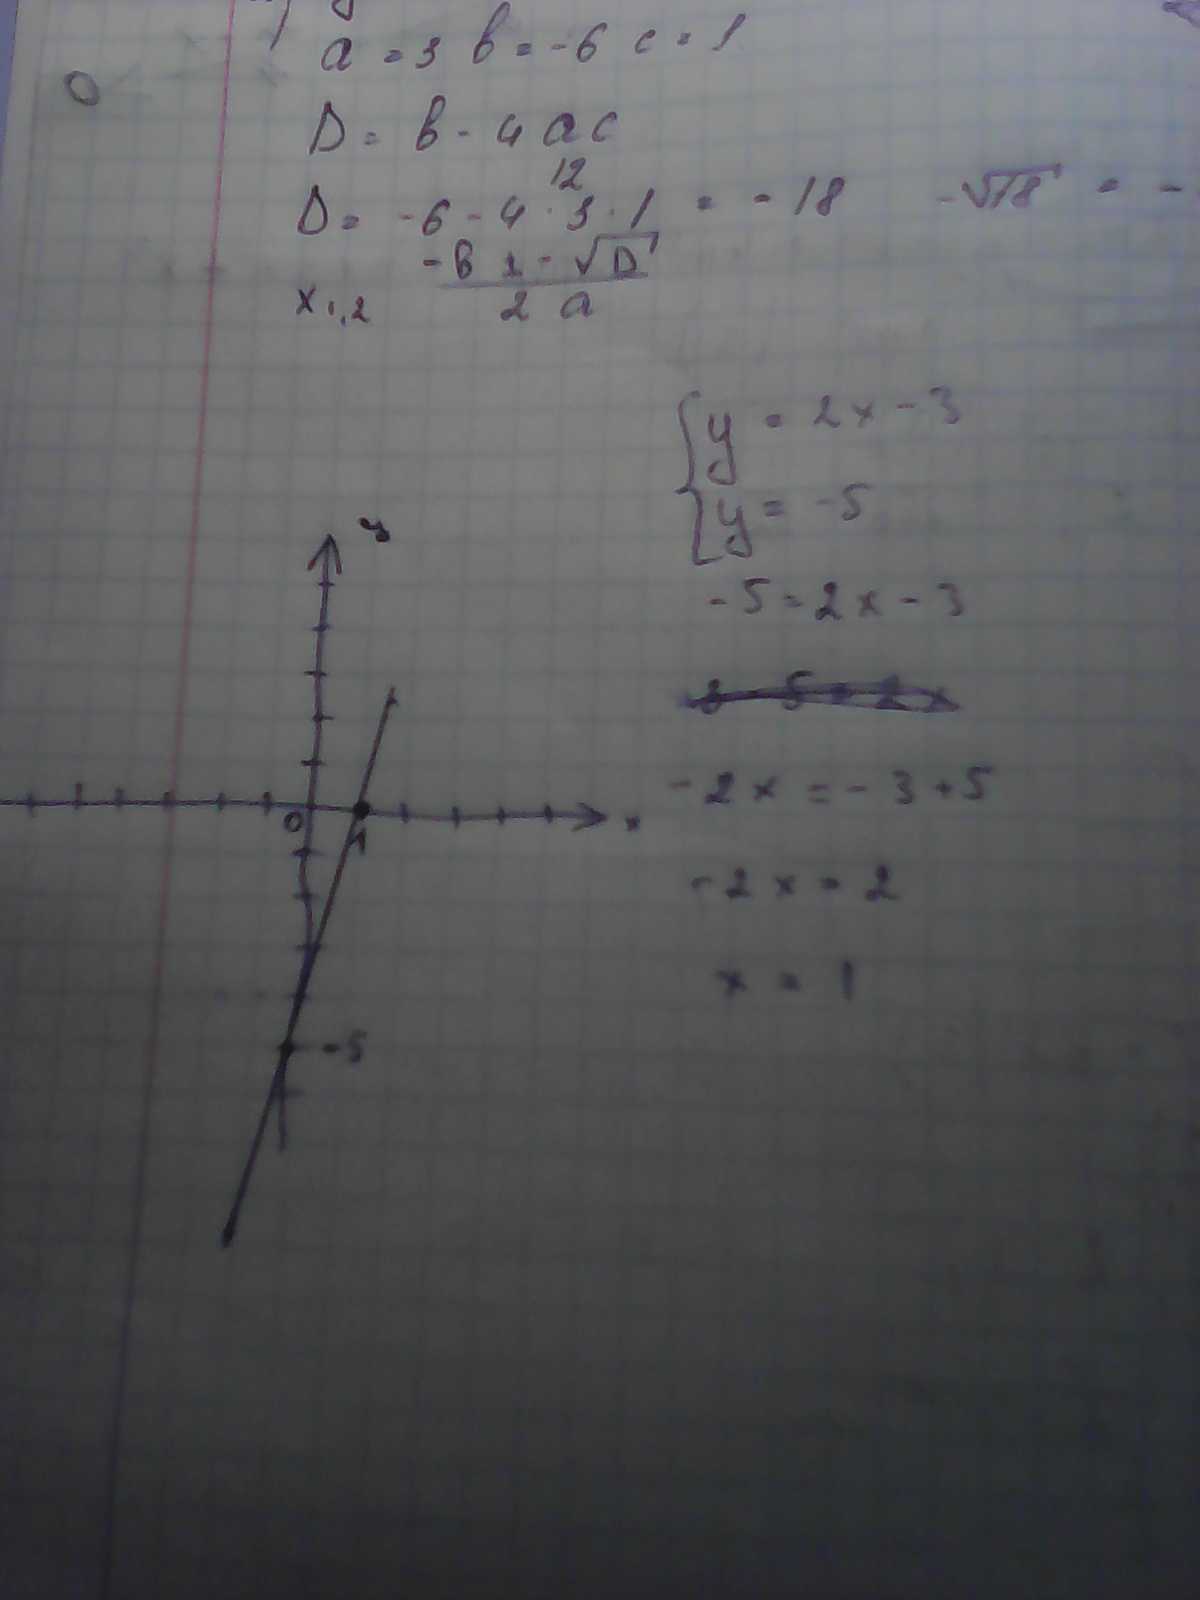 a = 3 b = -6 c = 1
D = b - 4ac
12
D = -6 - 4 · 3 · 1 = -18 -√18 = -
x1,2 -b ± √D / 2a
y = 2x - 3
y = -5
-5 = 2x - 3
-2x = -3 + 5
-2x = 2
x = 1
y
0 1 x
-5